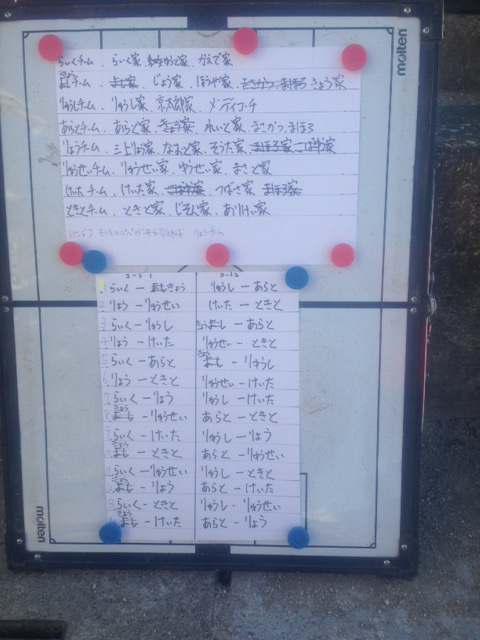 molten
らいくチーム、らいく家、かえで家
きょうチーム、じょう家、ほうや家、きょう家
りゅうしチーム、りゅうし家、京太郎家、メンディコーチ
あらとチーム、あらと家、れいと家、まさかつ、まほろ
りょうチーム、三上りょう家、なおと家、そうた家
りゅうせいチーム、りゅうせい家、ゆうせい家、まさと家
けいたチーム、けいた家、つばさ家
ときとチーム、ときと家、じそん家、おりけい家
りょうチーム
コート1 コート2
1 らいく ー きょう りゅうし ー あらと
2 りょう ー りゅうせい けいた ー ときと
3 らいく ー りゅうし きょう ー あらと
4 りょう ー けいた りゅうせい ー ときと
5 らいく ー あらと きょう ー りゅうし
6 りょう ー ときと りゅうせい ー けいた
7 らいく ー りょう りゅうし ー けいた
8 きょう ー りゅうせい あらと ー ときと
らいく ー けいた りゅうし ー りょう
きょう ー ときと あらと ー りゅうせい
らいく ー りゅうせい りゅうし ー ときと
きょう ー りょう あらと ー けいた
らいく ー ときと りゅうし ー りゅうせい
きょう ー けいた あらと ー りょう
molten